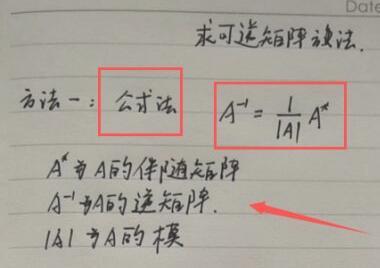 Date
求可逆矩阵方法.
方法一: 公求法 A⁻¹ = 1/|A| A*
A*为A的伴随矩阵
A⁻¹为A的逆矩阵.
|A|为A的模